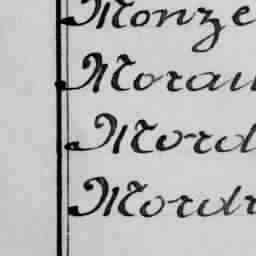 Monze
Morau
Mord
Mordr